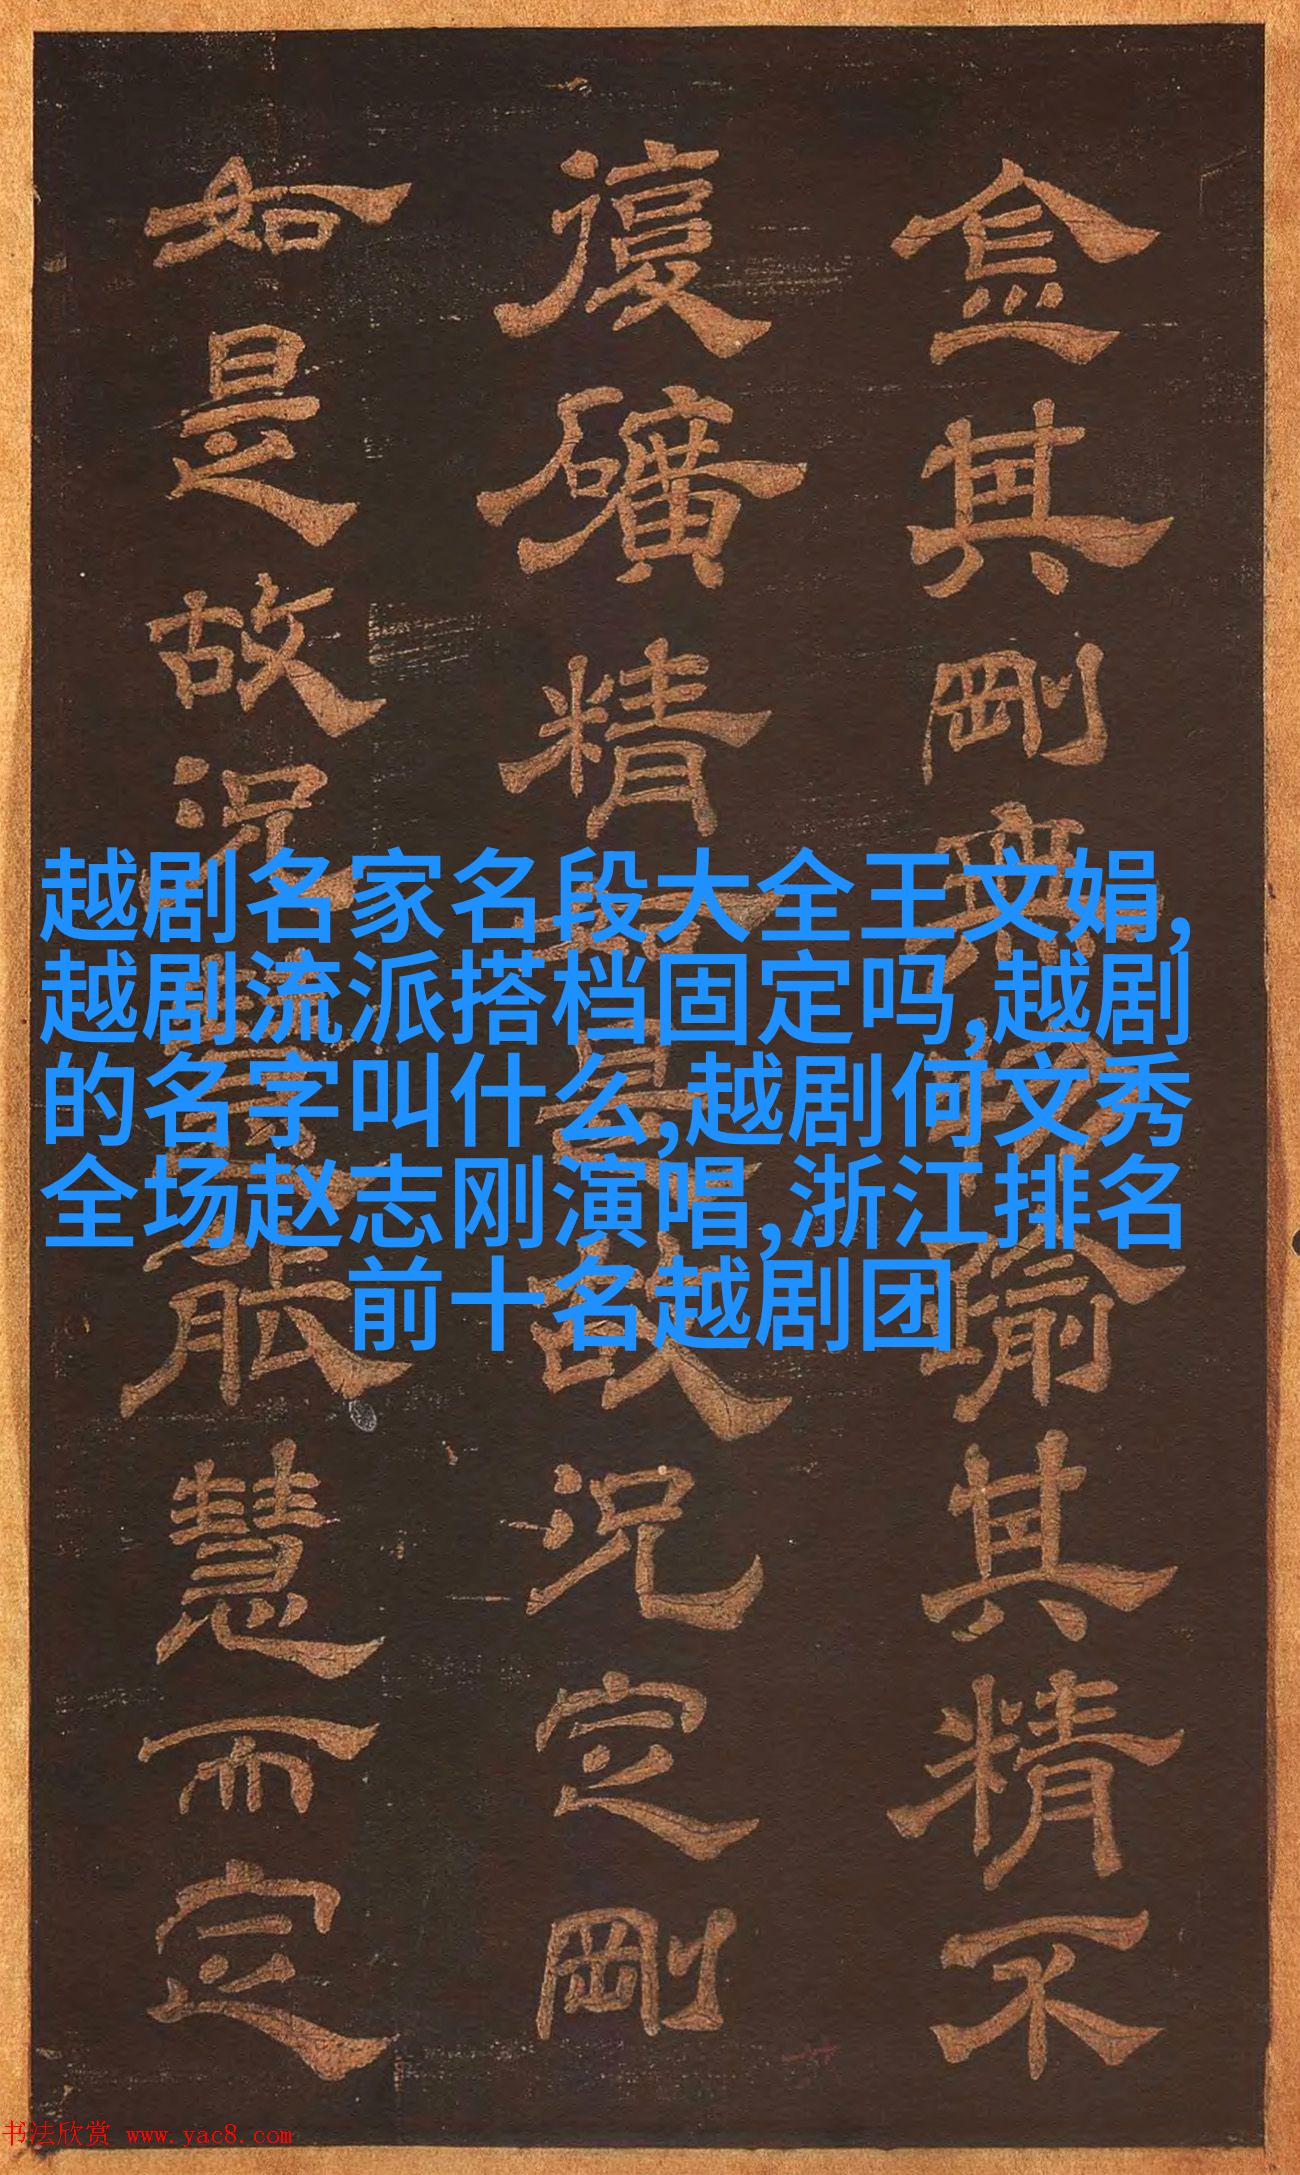 金其剛無踰其精不
復礦精故況定剛
如是故況能慧而定
越剧名家名段大全王文娟,
越剧流派搭档固定吗,越剧
的名字叫什么,越剧何文秀
全场赵志刚演唱,浙江排名
前十名越剧团
书法欣赏 www.yac8.com